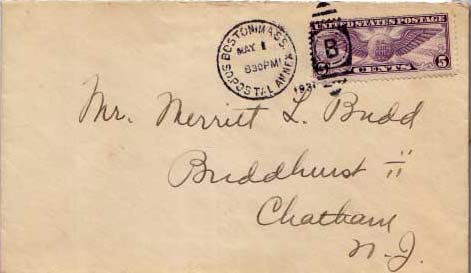 BOSTON, MASS.
MAY 1
830PM
193
SO. POSTAL ANNEX
UNITED STATES POSTAGE
B
5 CENTS 5
Mr. Merritt L. Budd
Buddhurst "
Chatham
N-J.